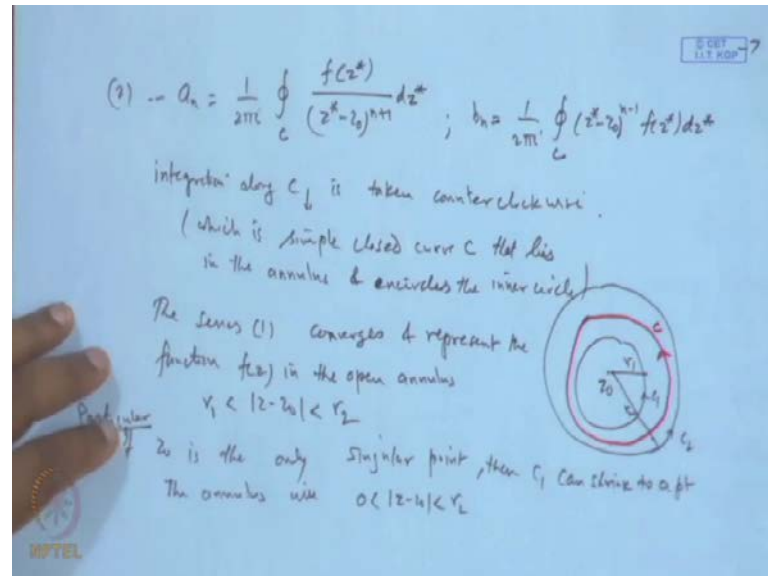 © CET
I.I.T. KGP
-7
(2) -- a_n = 1/2πi ∮_C f(z*)/(z*-z_0)^{n+1} dz* ; b_n = 1/2πi ∮_C (z*-z_0)^{n-1} f(z*) dz*
integration along C ↓ is taken counterclockwise.
(which is simple closed curve C that lies
in the annulus & encircles the inner circle)
The series (1) converges & represent the
function f(z) in the open annulus
r_1 < |z-z_0| < r_2
C
r_1
z_0
C_1
C_2
Particular
If z_0 is the only singular point, then C_1 can shrink to a pt
The annulus 0 < |z-z_0| < r_2
NPTEL